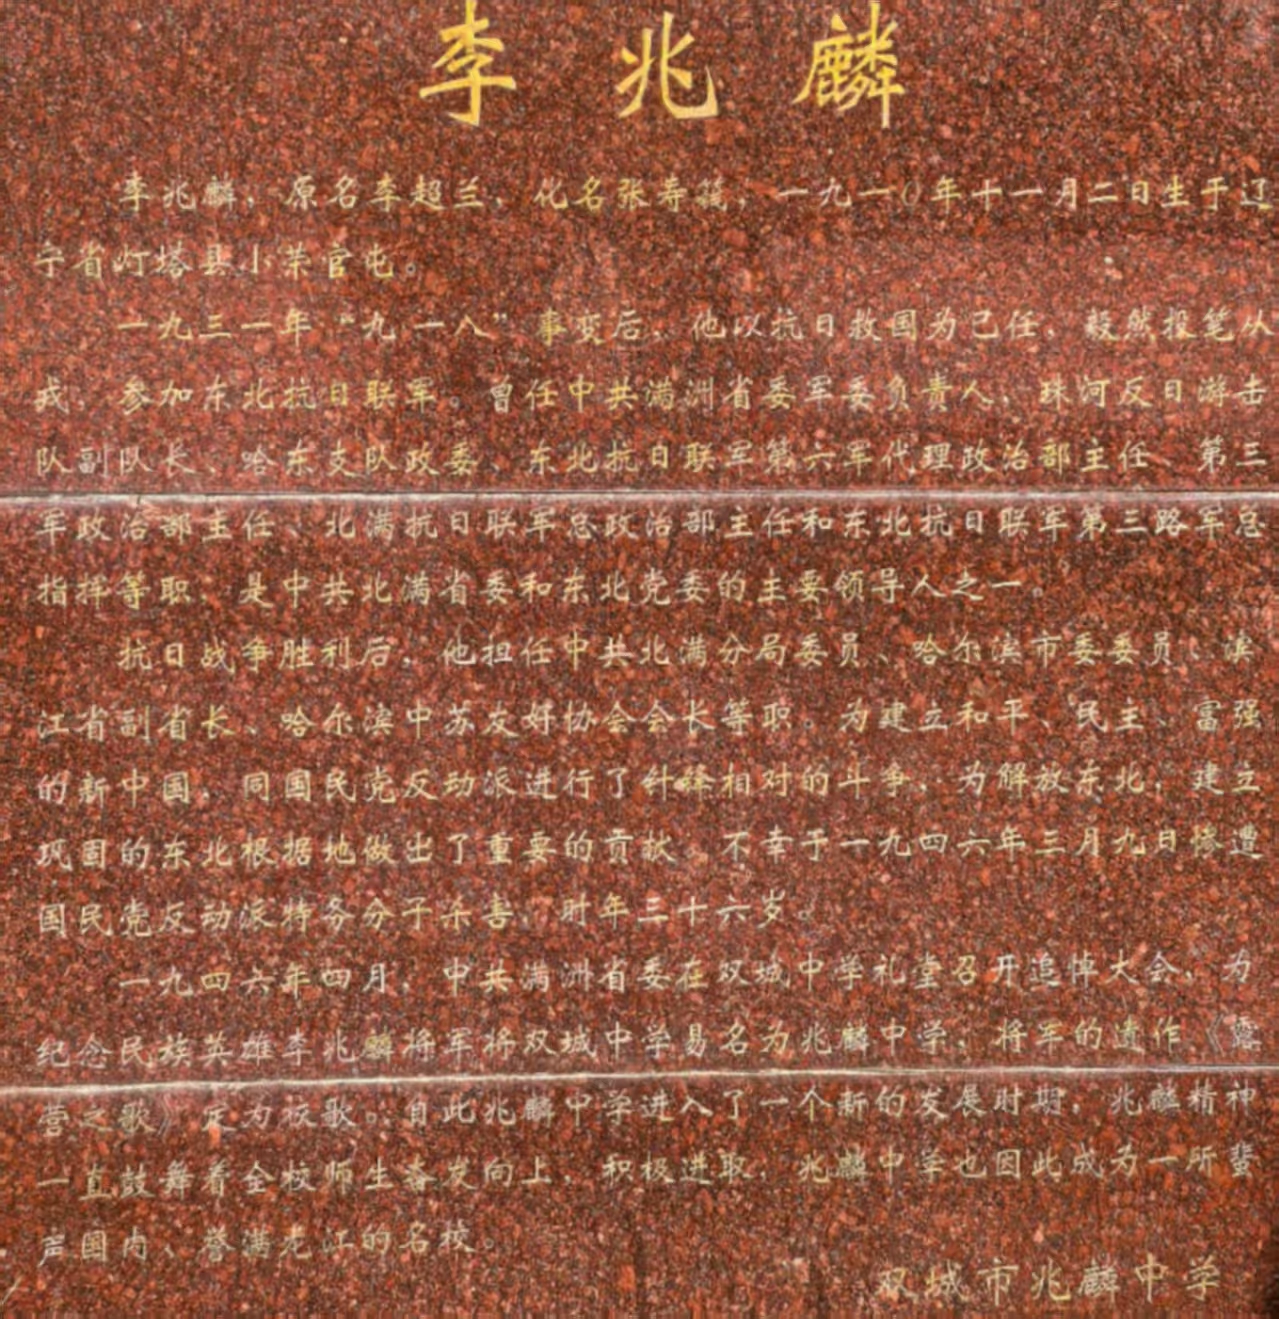 李兆麟
李兆麟，原名李超兰，化名张寿篯，一九一〇年十一月二日生于辽
宁省灯塔县小荣官屯。
一九三一年“九一八”事变后，他以抗日救国为己任，毅然投笔从
戎，参加东北抗日联军。曾任中共满洲省委军委负责人、珠河反日游击
队副队长、哈东支队政委、东北抗日联军第六军代理政治部主任、第三
军政治部主任、北满抗日联军总政治部主任和东北抗日联军第三路军总
指挥等职，是中共北满省委和东北党委的主要领导人之一。
抗日战争胜利后，他担任中共北满分局委员、哈尔滨市委委员、滨
江省副省长、哈尔滨中苏友好协会会长等职。为建立和平、民主、富强
的新中国，同国民党反动派进行了针锋相对的斗争，为解放东北，建立
巩固的东北根据地做出了重要的贡献。不幸于一九四六年三月九日惨遭
国民党反动派特务分子杀害，时年三十六岁。
一九四六年四月，中共满洲省委在双城中学礼堂召开追悼大会，为
纪念民族英雄李兆麟将军将双城中学易名为兆麟中学，将军的遗作《露
营之歌》定为校歌。自此兆麟中学进入了一个新的发展时期，兆麟精神
一直鼓舞着全校师生奋发向上，积极进取，兆麟中学也因此成为一所蜚
声国内、誉满龙江的名校。
双城市兆麟中学